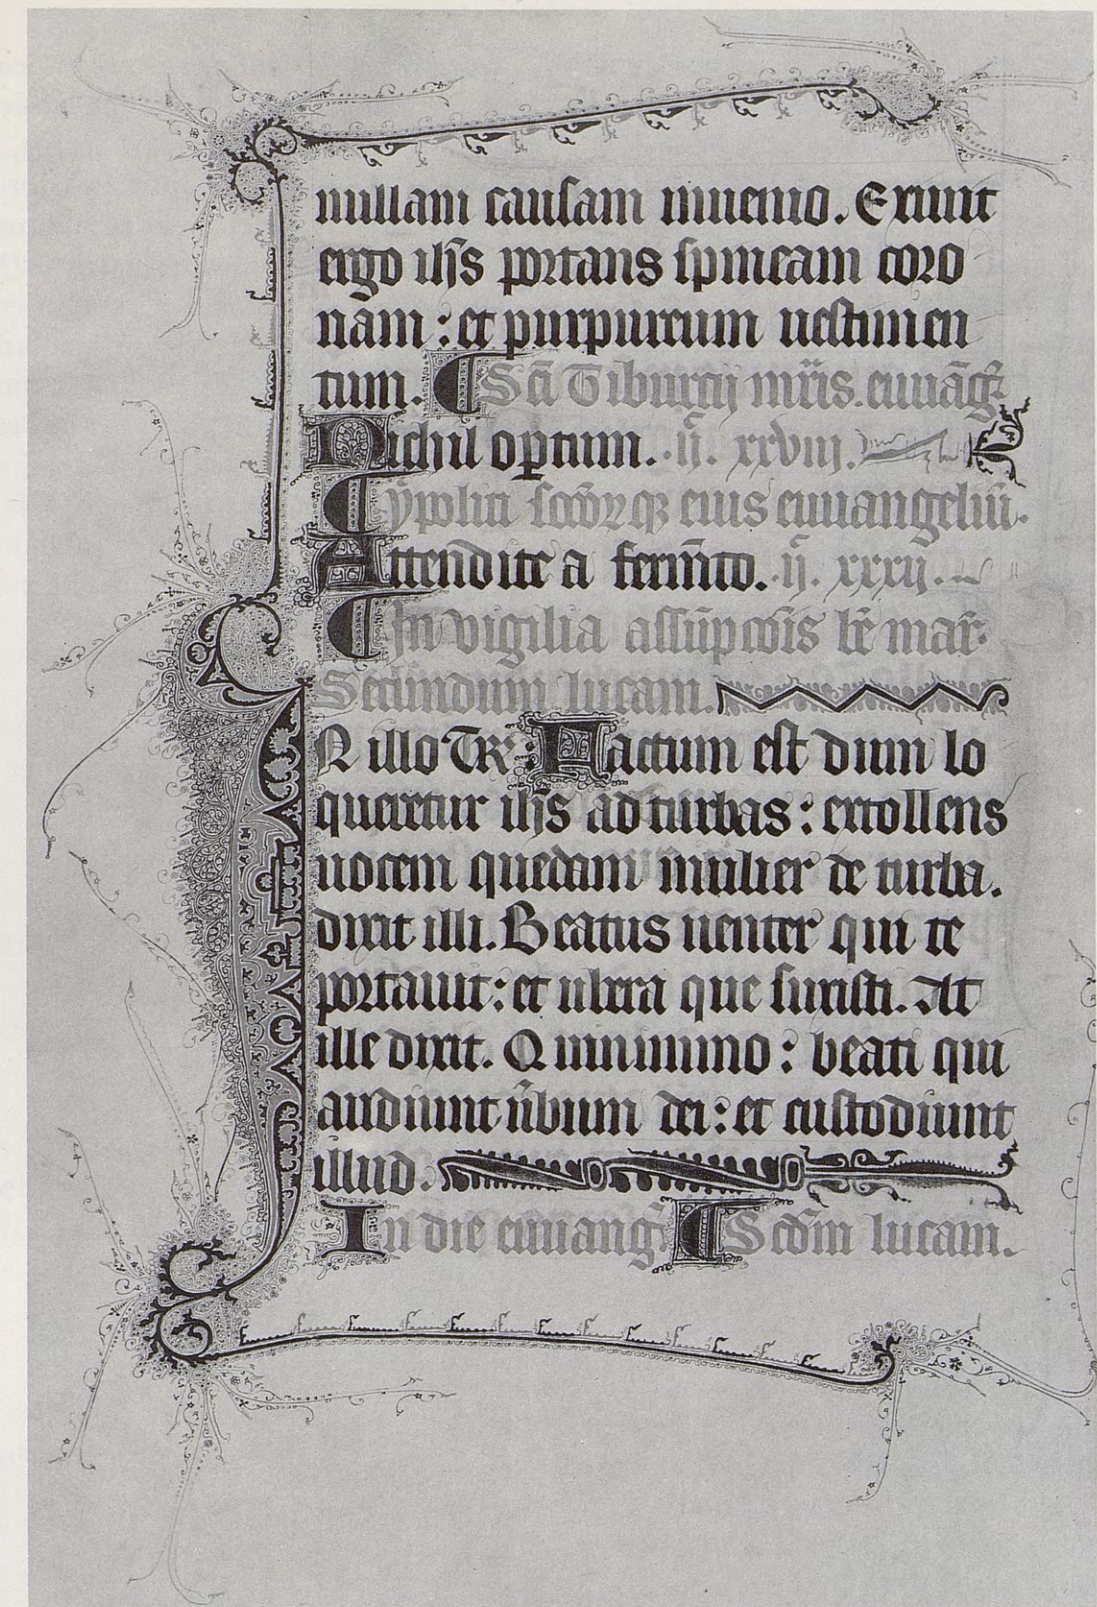 nullam causam inuenio. Exiuit
ergo ih̄s portans spineam coro
nam : et purpureum uestimen
tum. Sc̄i Tiburcij mr̄is. euuāgꝭ
Nichil op̲tum. ·ij. xxviij.
Ypoliti socioꝝqꝫ eius euuangeliū.
Attendite a ferm̄to. ·ij. xxxij.
In vigilia assūpcōis bē mar̄.
Secundum lucam.
IN illo Tꝶ : Factum est dum lo
queretur ih̄s ad turbas : extollens
uocem quedam mulier de turba.
dixit illi. Beatus uenter qui te
portauit : et ubera que suxisti. At
ille dixit. Quinimmo : beati qui
audiunt u̅bum dei : et custodiunt
illud.
In die euuangꝭ Scd̄m lucam.